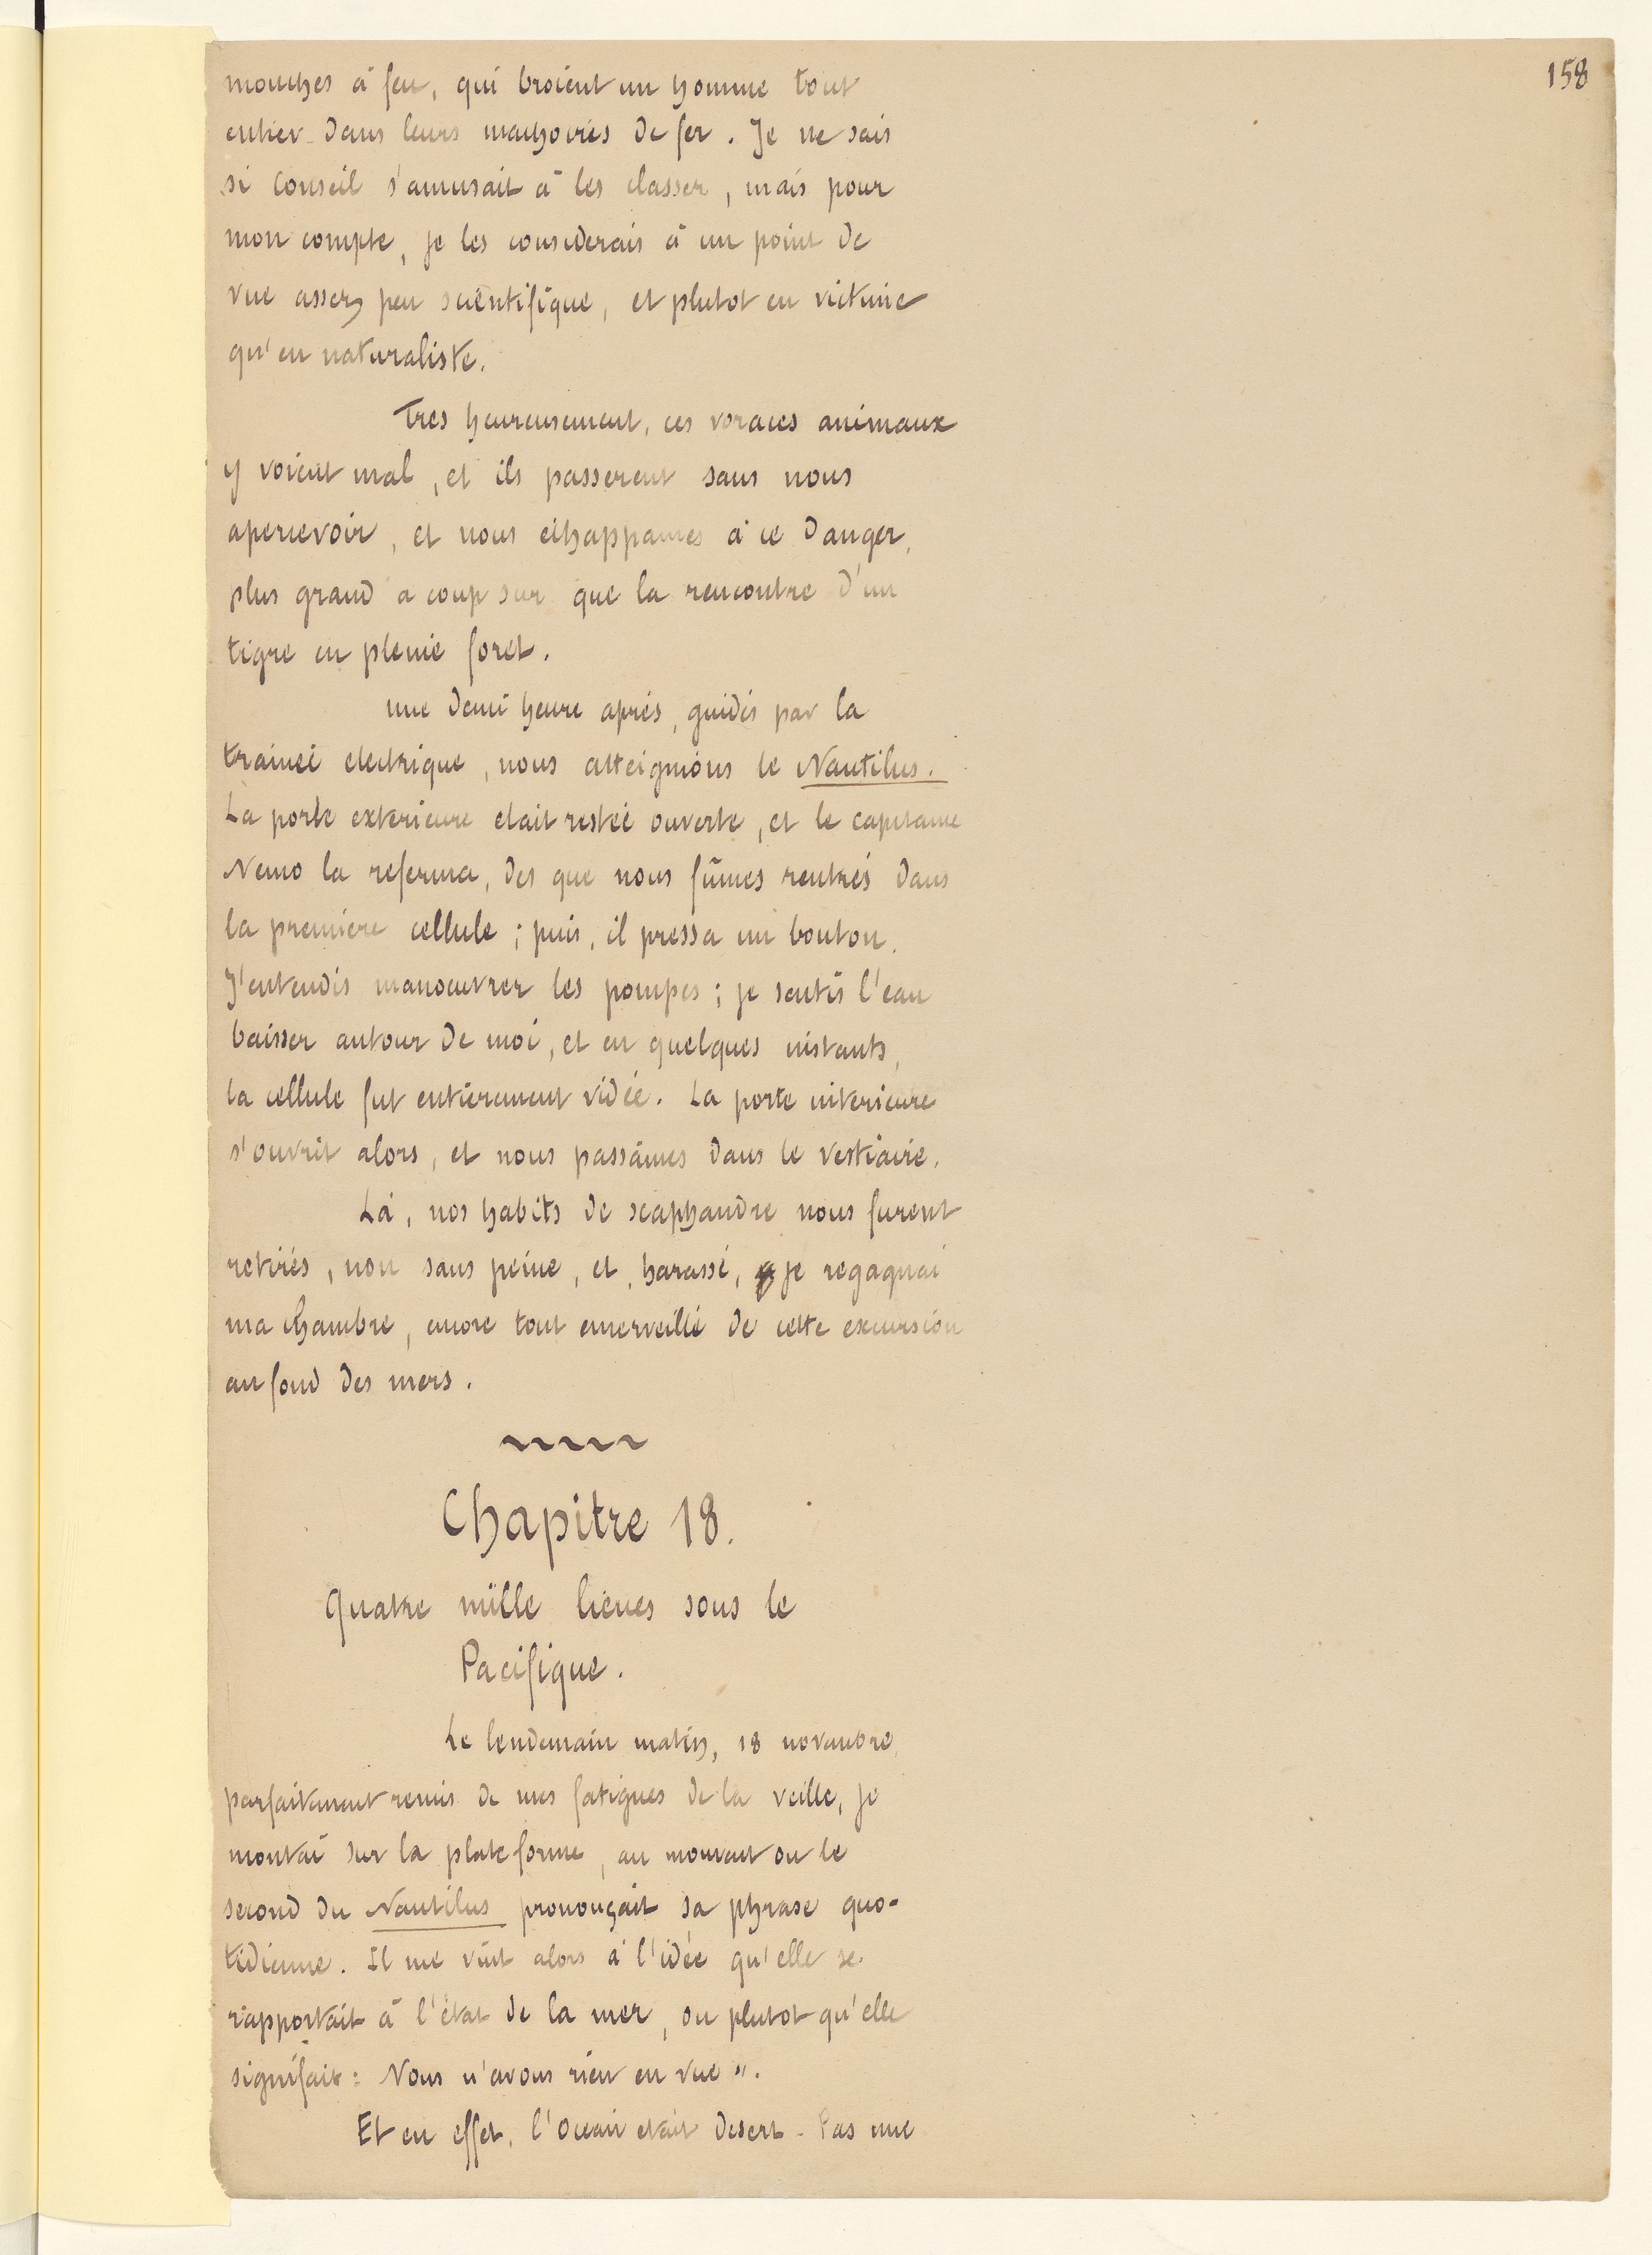 158
mouches à feu, qui broient un homme tout
entier dans leurs machoires de fer. Je ne sais
si Conseil s'amusait à les classer, mais pour
mon compte, je les considerais à un point de
vue assez peu scientifique, et plutot en victime
qu'en naturaliste.
Tres heureusement, ces voraces animaux
y voient mal, et ils passerent sans nous
apercevoir, et nous échappames à ce danger,
plus grand a coup sur que la rencontre d'un
tigre en pleine foret.
une demi heure après, guidés par la
trainée electrique, nous atteignions le Nautilus.
La porte exterieure etait restée ouverte, et le capitaine
Nemo la referma, des que nous fûmes rentrés dans
la premiere cellule ; puis, il pressa un bouton.
J'entendis manoeuvrer les pompes ; je sentis l'eau
baisser autour de moi, et en quelques instants,
la cellule fut entierement vidée. La porte interieure
s'ouvrit alors, et nous passâmes dans le vestiaire.
Là, nos habits de scaphandre nous furent
retirés, non sans peine, et, harassé, je regagnai
ma chambre, encore tout emerveillé de cette excursion
au fond des mers.
Chapitre 18.
Quatre mille lieues sous le
Pacifique.
Le lendemain matin, 18 novembre,
parfaitement remis de mes fatigues de la veille, je
montai sur la plate forme, au moment ou le
second du Nautilus prononçait sa phrase quo-
tidienne. Il me vint alors à l'idée qu'elle se
rapportait à l'état de la mer, ou plutot qu'elle
signifait : Nous n'avons rien en vue ».
Et en effet, l'Ocean etait desert. Pas une